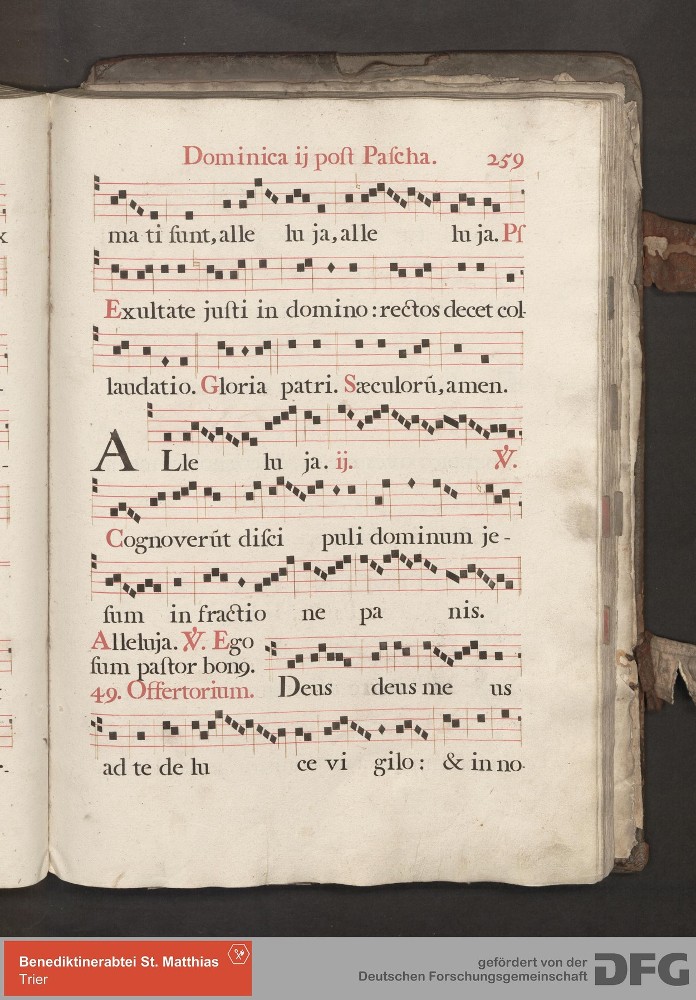 Dominica ij poſt Paſcha. 259
ma ti ſunt, alle lu ja, alle lu ja. Pſ
Exultate juſti in domino: rectos decet col-
laudatio. Gloria patri. Sæculorū, amen.
A Lle lu ja. ij. ℣.
Cognoverūt diſci puli dominum je-
ſum in fractio ne pa nis.
Alleluja. ℣. Ego
ſum paſtor bonꝰ.
49. Offertorium. Deus deus me us
ad te de lu ce vi gilo: & in no-
Benediktinerabtei St. Matthias
Trier
gefördert von der
Deutschen Forschungsgemeinschaft DFG